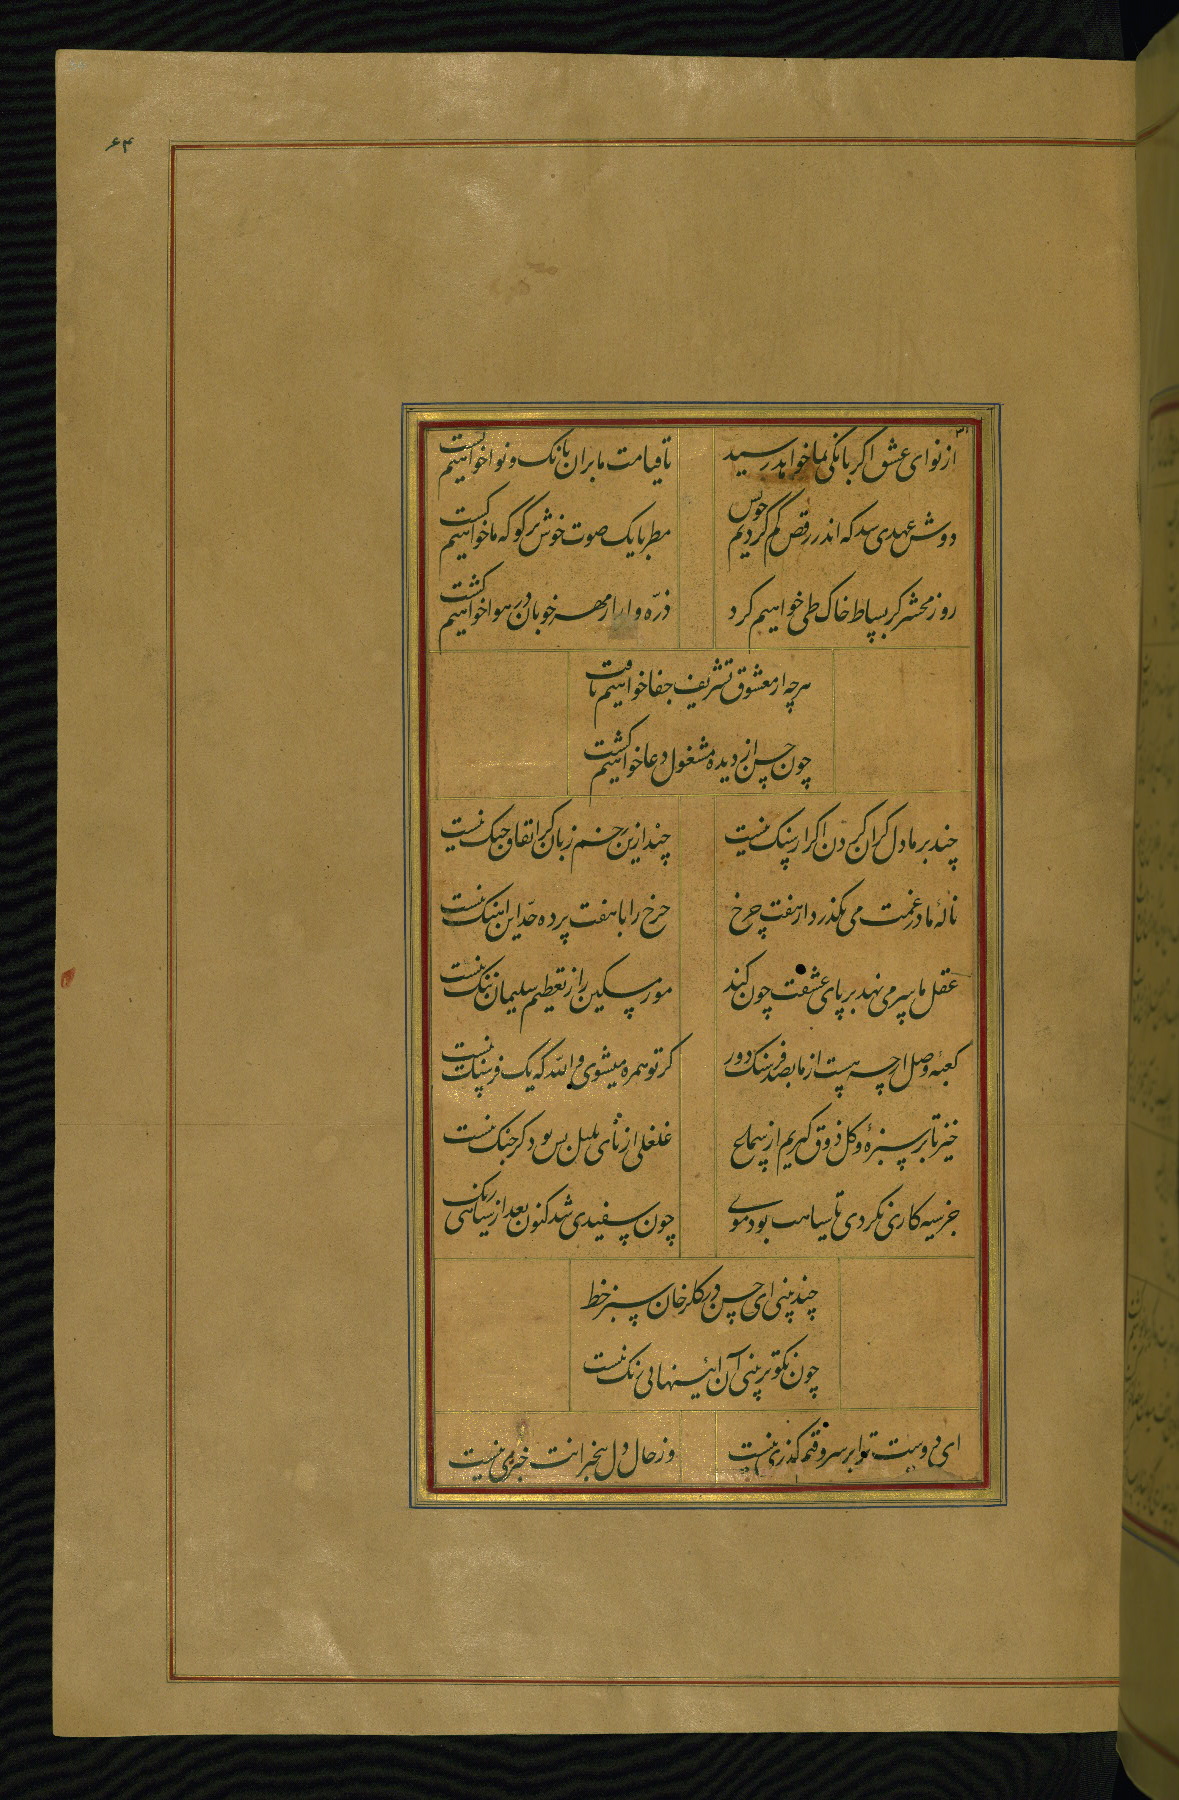 ۶۴
از نوای عشق اکر بانکی بما خواهد رسید
تا قیامت ما بران بانک و نوا خواهیم
دوش عهدی بد که اندر رقص کم کردیم
مطربا یک صوت خوش برکو که ما خواهیم
روز محشر کر بساط خاک طی خواهیم کرد
ذرّه وار از مهر خوبان در هوا خواهیم کشت
هرچه از معشوق تشریف جفا خواهیم یافت
چون حسن از دیده مشغول دعا خواهیم کشت
چند بر ما دل کران کردن اکر از سنک نیست
چند ازین زخم زبان کر اتفاق جنک نیست
نالهٔ ما در غمت می بکذرد از هفت چرخ
چرخ را با هفت پرده حدّ این اهنک نیست
عقل ما سر می نهد بر پای عشقت چون کند
مور مسکین را ز تعظیم سلیمان ننک نیست
کعبهٔ وصل ارچه هست از ما بصد فرسنک دور
کر تو همره میشوی والله که یک فرسنک نیست
خیز تا بر سبزه و کل ذوق کیریم از سماع
غلغلی از نای بلبل بس بود کر چنک نیست
جز سیه کاری نکردی تا سیاهت بود موی
چون سفیدی شد کنون بعد از سیاهی رنک
چند بینی ای حسن در کلرخان سبز خط
چون نکوتر بینی آن ائینها بی زنک نیست
ای دوست ترا بر سر وقتم کذری نیست
وز حال دل بیخبرانت خبری نیست